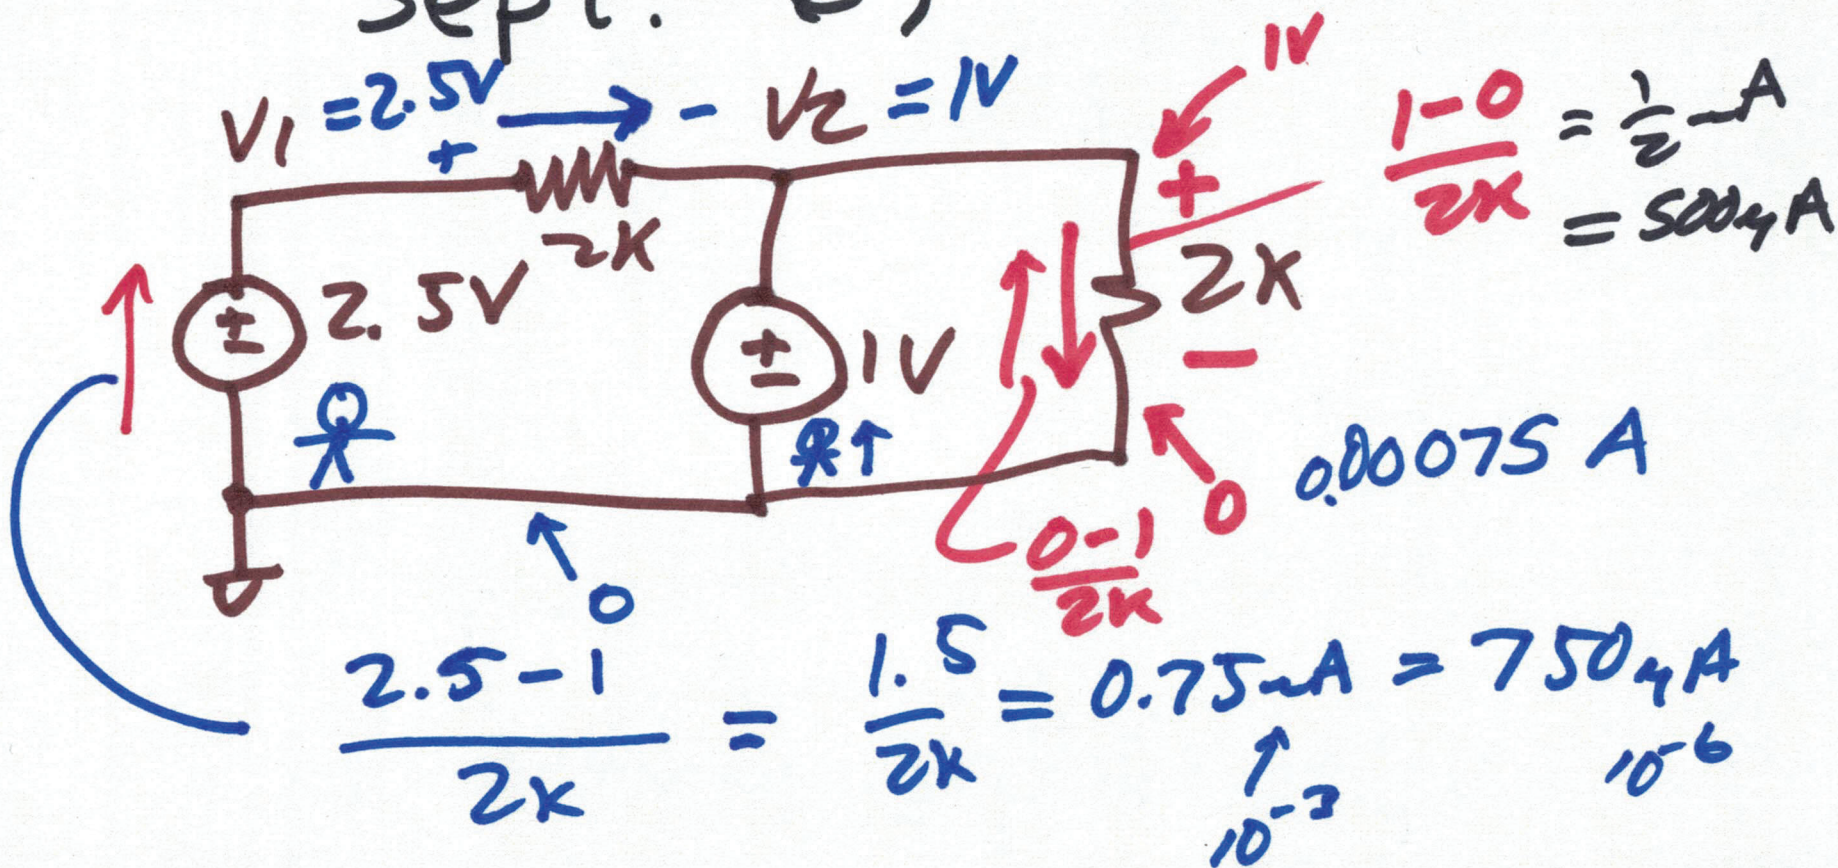 Sept.
1V
V1 = 2.5V → - V2 = 1V
+
1-0
2K
= 1/2 mA
= 500µA
+
2K
2K
+
-
2.5V
+
-
1V
-
0.00075 A
0
0-1
2K
0
2.5-1
2K
=
1.5
2K
= 0.75mA = 750µA
10⁻³
10⁻⁶